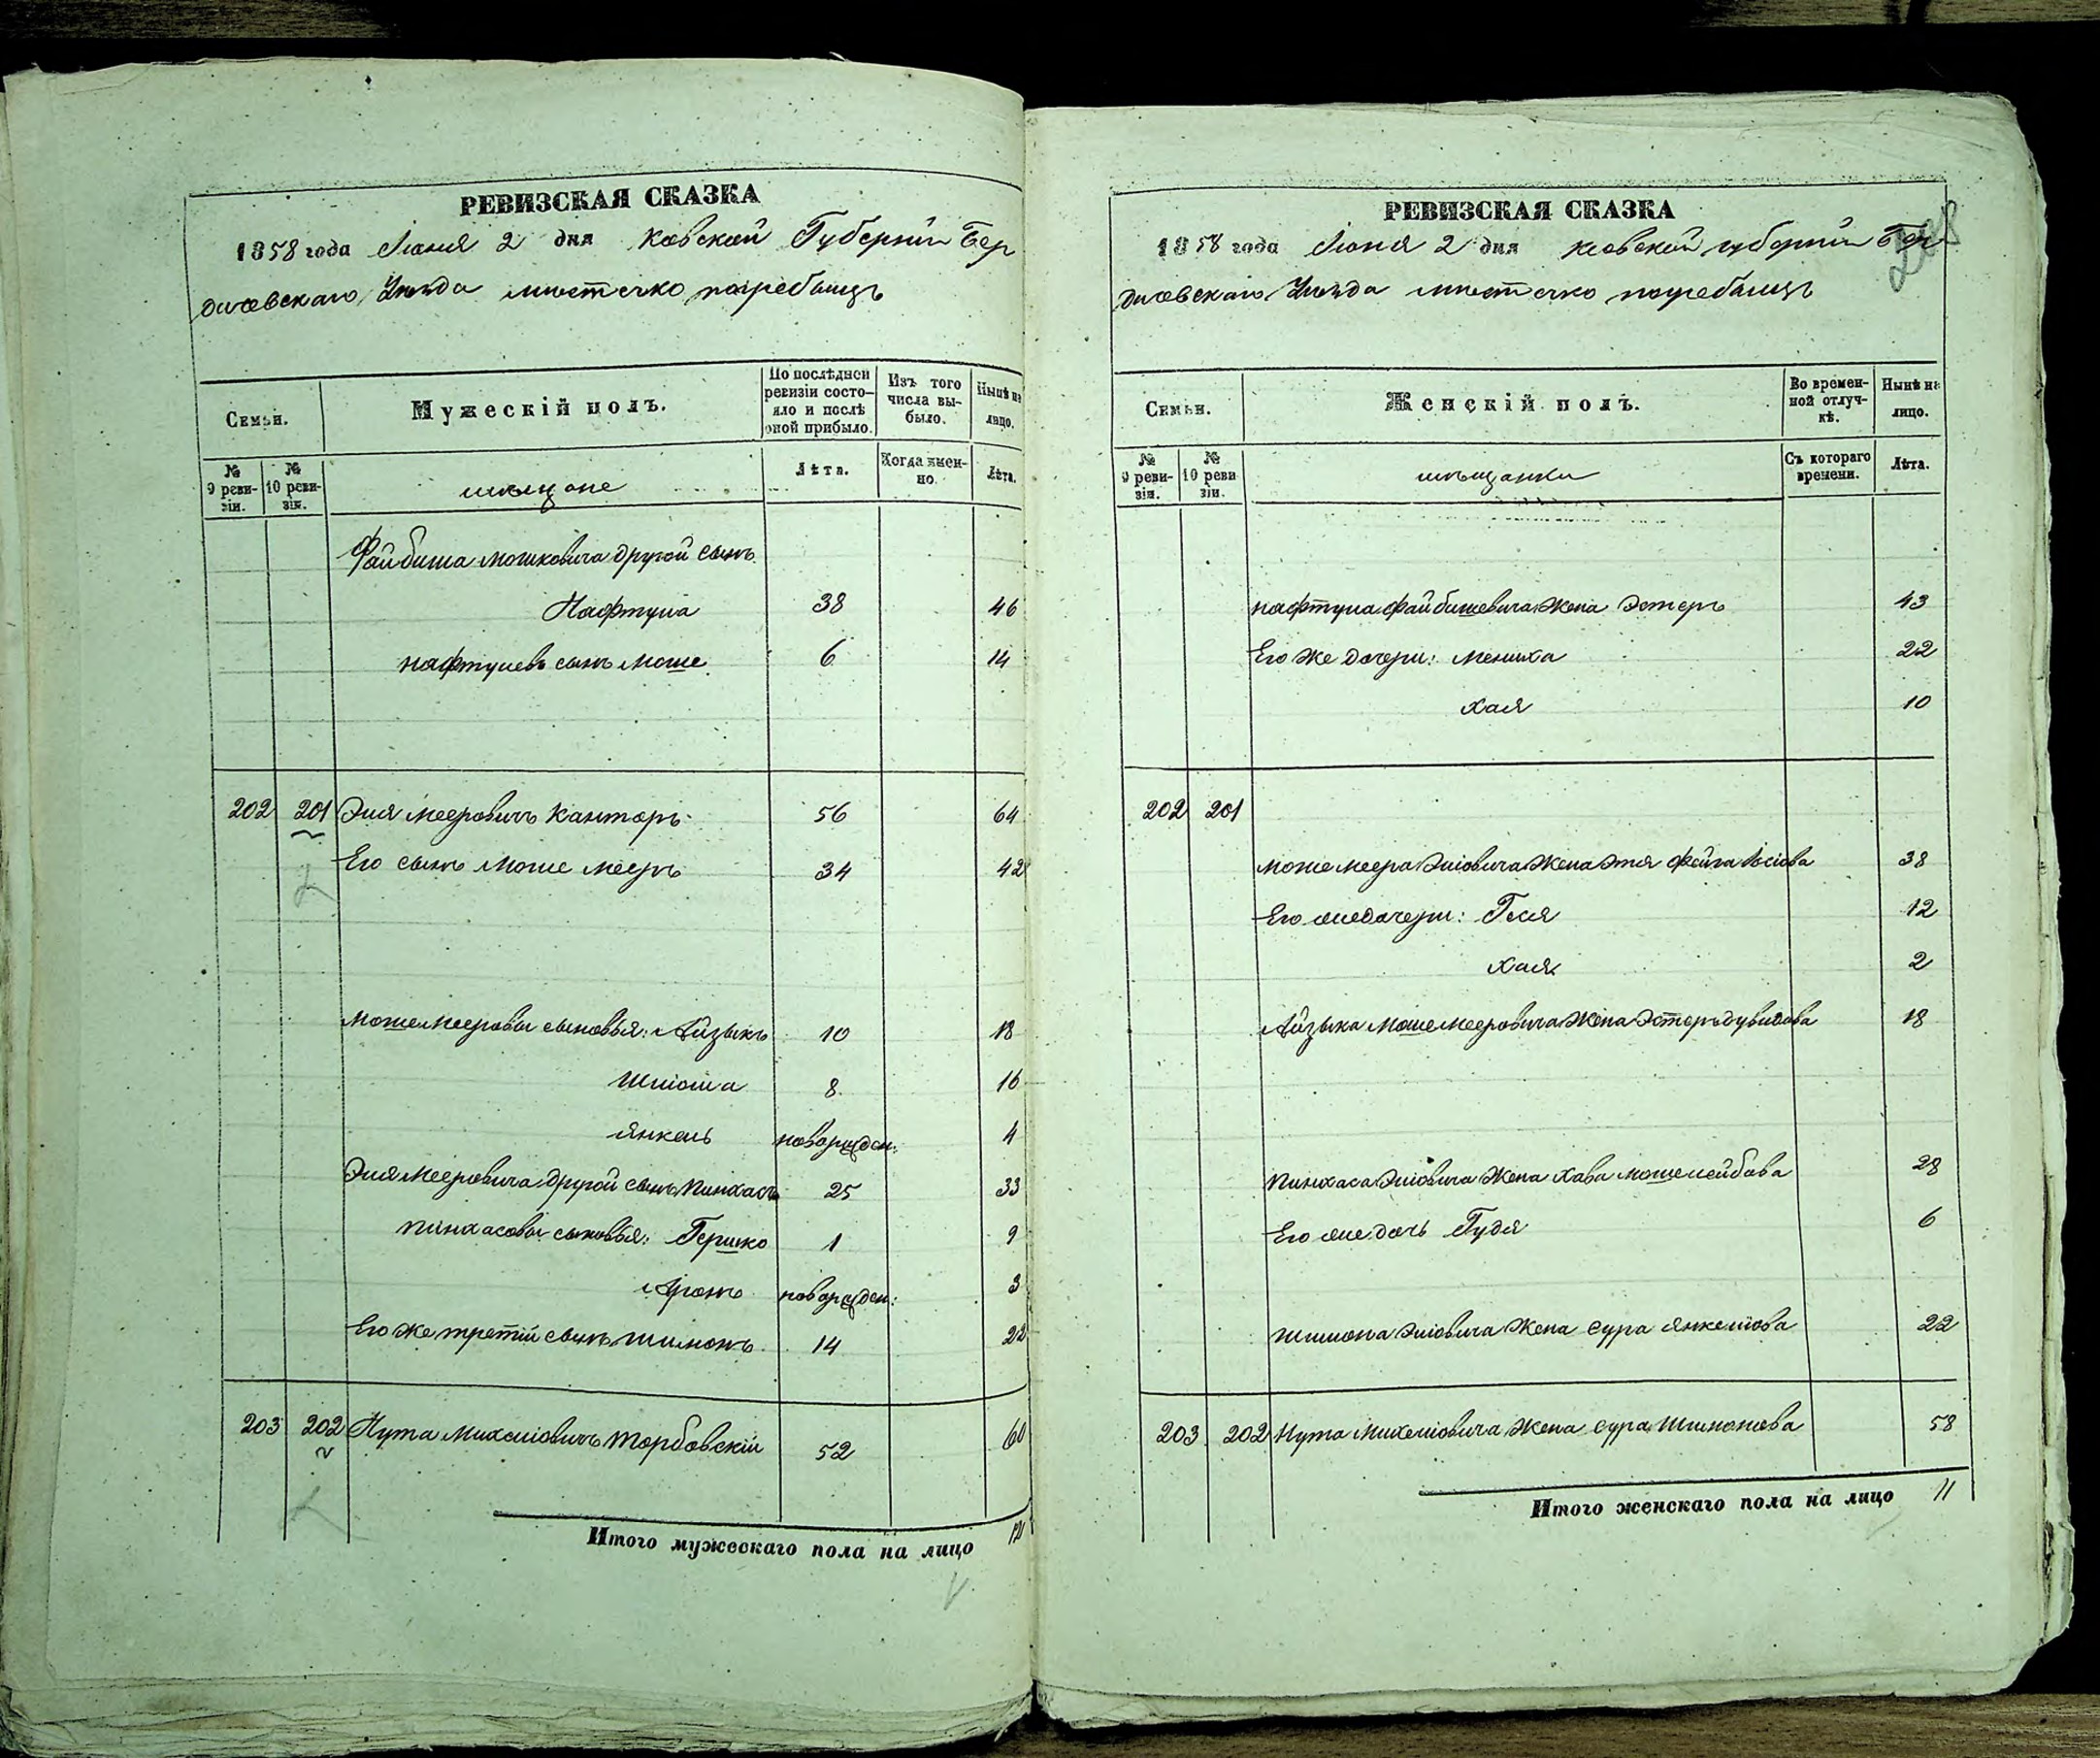 РЕВИЗСКАЯ СКАЗКА
1858 года Июня 2 дня Киевской Губернiи Бер
дичевскаго Уезда местечко погребищъ
Семьи.
Мужескiй полъ.
По послѣдней ревизiи состо-
яло и послѣ
оной прибыло.
Изъ того
числа вы-
было.
Нынѣ на
лицо.
№
9 реви-
зiи.
№
10 реви-
зiи.
мещане
Лѣта.
Когда имен-
но.
Лѣта.
Файбиша Мошковича другой сынъ
Нафтула 38 46
Нафтулевъ сынъ Моше 6 14
202 201 Эля Мееровичъ Канторъ 56 64
Его сынъ Моше Мееръ 34 42
Моше Мееровы сыновья: Айзыкъ 10 18
Шлiома 8 16
Янкель новорожден: 4
Эля Мееровича другой сынъ Пинхасъ 25 33
Пинхасовы сыновья: Гершко 1 9
Аронъ новорожден: 3
Его же третiй сынъ Шимонъ 14 22
203 202 Нута Михелiовичъ Торбовскiй 52 60
Итого мужескаго пола на лицо 12
РЕВИЗСКАЯ СКАЗКА
1858 года Июня 2 дня Киевской губернiи Бер
дичевскаго Уезда местечко погребищъ
Семьи.
Женскiй полъ.
Во времен-
ной отлуч-
кѣ.
Нынѣ на
лицо.
№
9 реви-
зiи.
№
10 реви
зiи.
мещанки
Съ котораго
времени.
Лѣта.
Нафтула Файбишевича Жена Эстеръ 43
Его же дочери: Мениха 22
Хая 10
202 201
Моше Меера Элiовича Жена Этя Фейга Iосiова 38
Его же дочери: Геся 12
Хая 2
Айзыка Моше Мееровича Жена Эстеръ Дувидова 18
Пинхаса Элiовича Жена Хава Мошелейбова 28
Его же дочь Гудя 6
Шимона Элiовича Жена Сура Янкелiова 22
203 202 Нута Михелiовича Жена Сура Шимонова 58
Итого женскаго пола на лицо 11